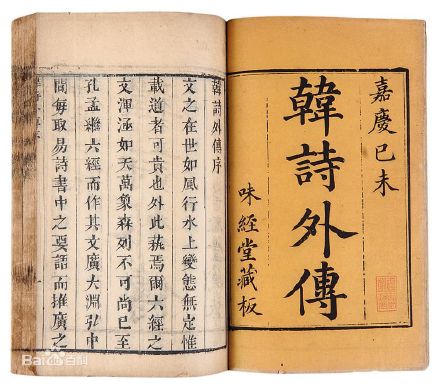 嘉慶己未
韓詩外傳
味經堂藏板
韓詩外傳序
文之在世如風行水上變態無定惟
載道者可貴也外此蓺焉爾六經之
文渾涵如天萬象森列不可尚已至
孔孟繼六經而作其文廣大淵弘中
間每取易詩書中之要語而推廣之
Bai 百科